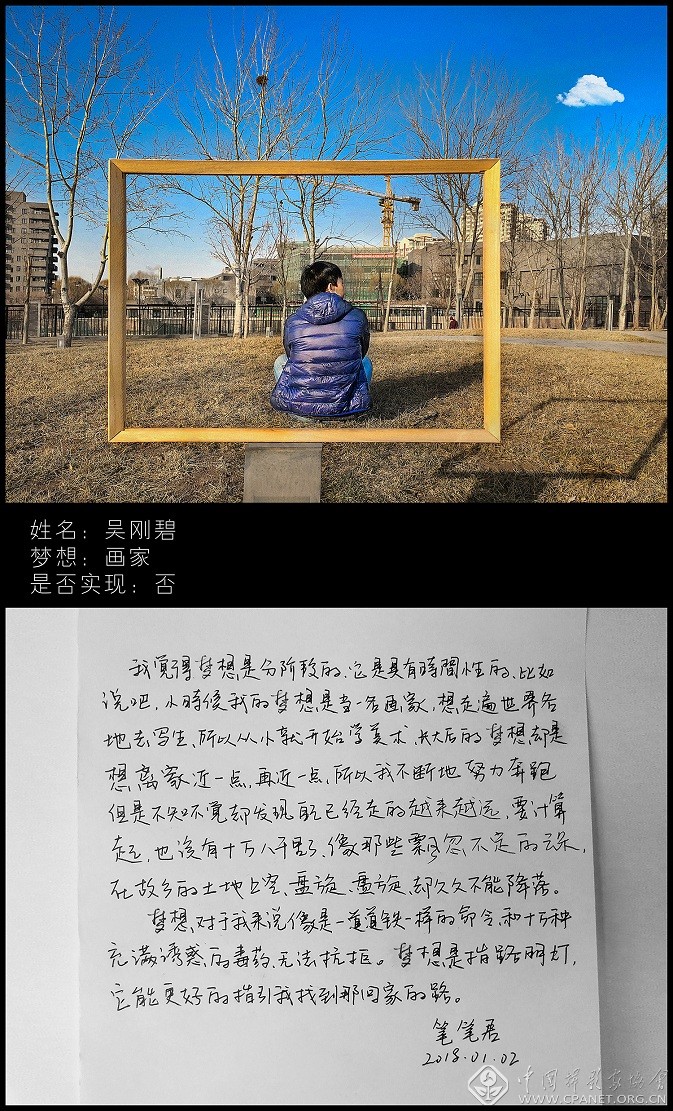 姓名：吴刚碧
梦想：画家
是否实现：否
我觉得梦想是分阶段的、它是具有時間性的、比如
说吧，小時候我的梦想是当一名画家，想走遍世界各
地去写生、所以从小就开始学美术、长大后的梦想却是
想离家近一点，再近一点，所以我不断地努力奔跑
但是不知不觉却发现自己已经走的越来越远，要计算
起，也没有十万八千里了、像那些飘忽不定的云朵、
在故乡的土地上空、盘旋、盘旋、却久久不能降落。
梦想、对于我来说像是一道道铁一样的命令、和十万种
充满诱惑的毒药、无法抗拒。梦想是指路明灯，
它能更好的指引我找到那回家的路。
笔笔吾
2018.01.02
中国摄影家协会
WWW.CPANET.ORG.CN